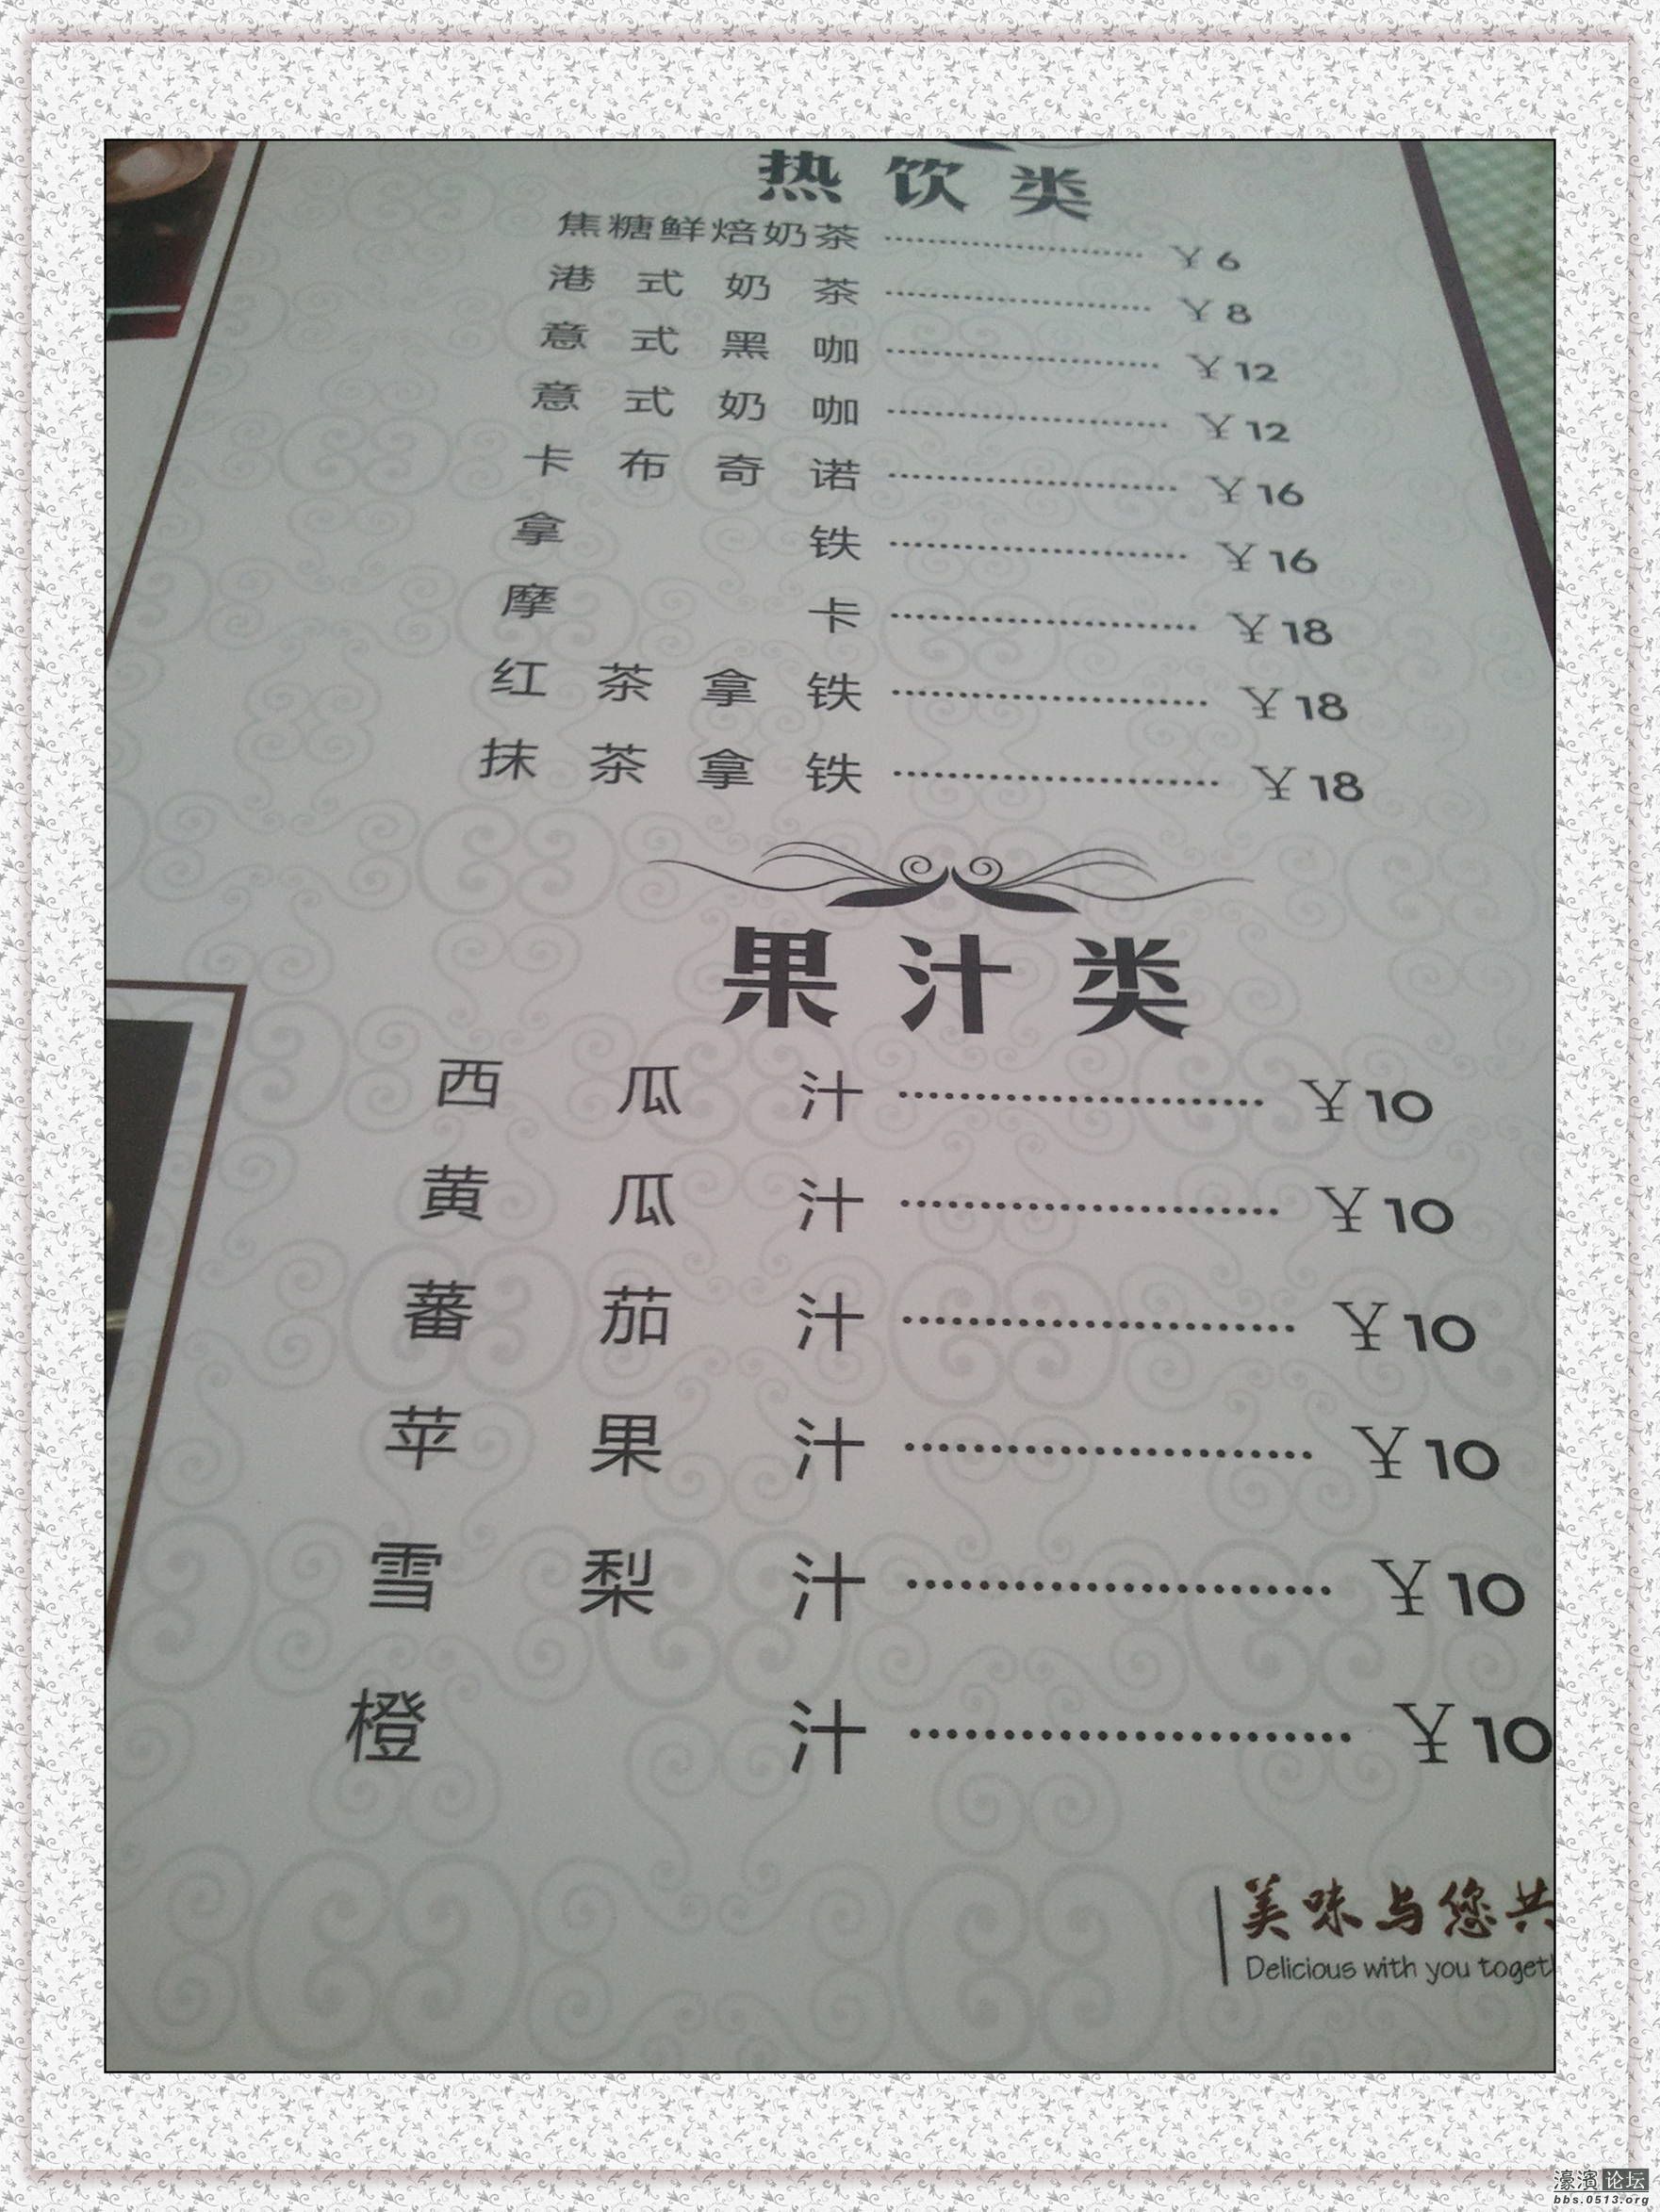 热饮类
焦糖鲜焙奶茶 ¥6
港式奶茶 ¥8
意式黑咖 ¥12
意式奶咖 ¥12
卡布奇诺 ¥16
拿铁 ¥16
摩卡 ¥18
红茶拿铁 ¥18
抹茶拿铁 ¥18
果汁类
西瓜汁 ¥10
黄瓜汁 ¥10
蕃茄汁 ¥10
苹果汁 ¥10
雪梨汁 ¥10
橙汁 ¥10
美味与您共
Delicious with you toget
濠滨论坛
bbs.0513.org